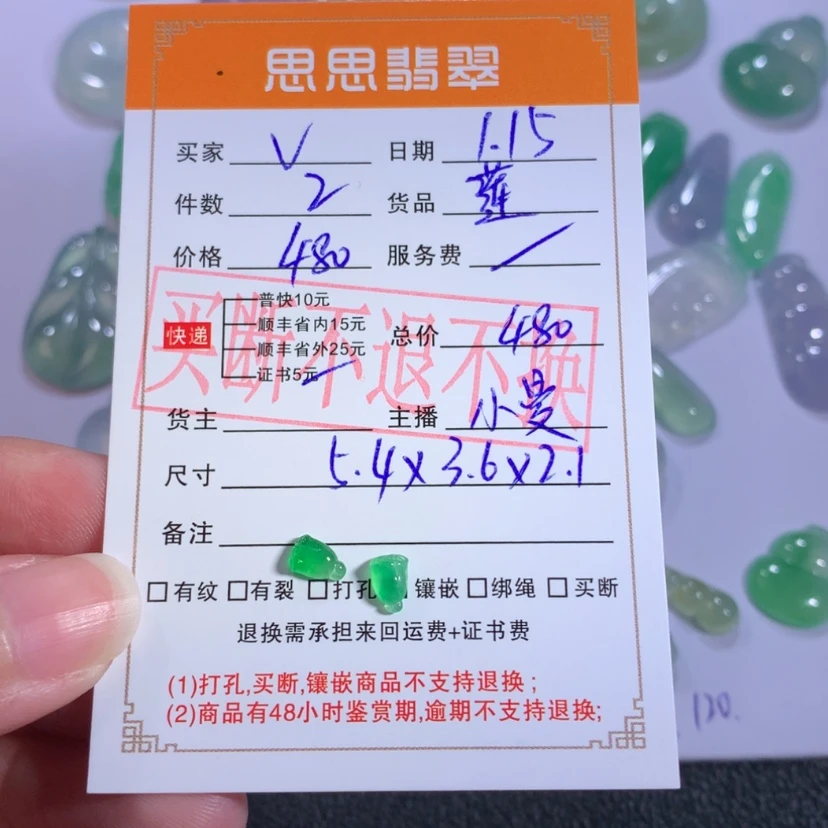 思思翡翠
买家 V 日期 1.15
件数 2 货品 莲
价格 480 服务费 /
普快10元
顺丰省内15元
快递 总价 480
顺丰省外25元
证书5元
买断不退不换
货主 主播 小曼
尺寸 5.4x3.6x2.1
备注
□有纹 □有裂 □打孔 镶嵌 □绑绳 □买断
退换需承担来回运费+证书费
(1)打孔,买断,镶嵌商品不支持退换;
(2)商品有48小时鉴赏期,逾期不支持退换;
120.